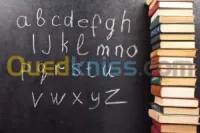 a b c d e f g h
I J k l m n o
p q r s t u
v w x y z
Ouedkniss.com